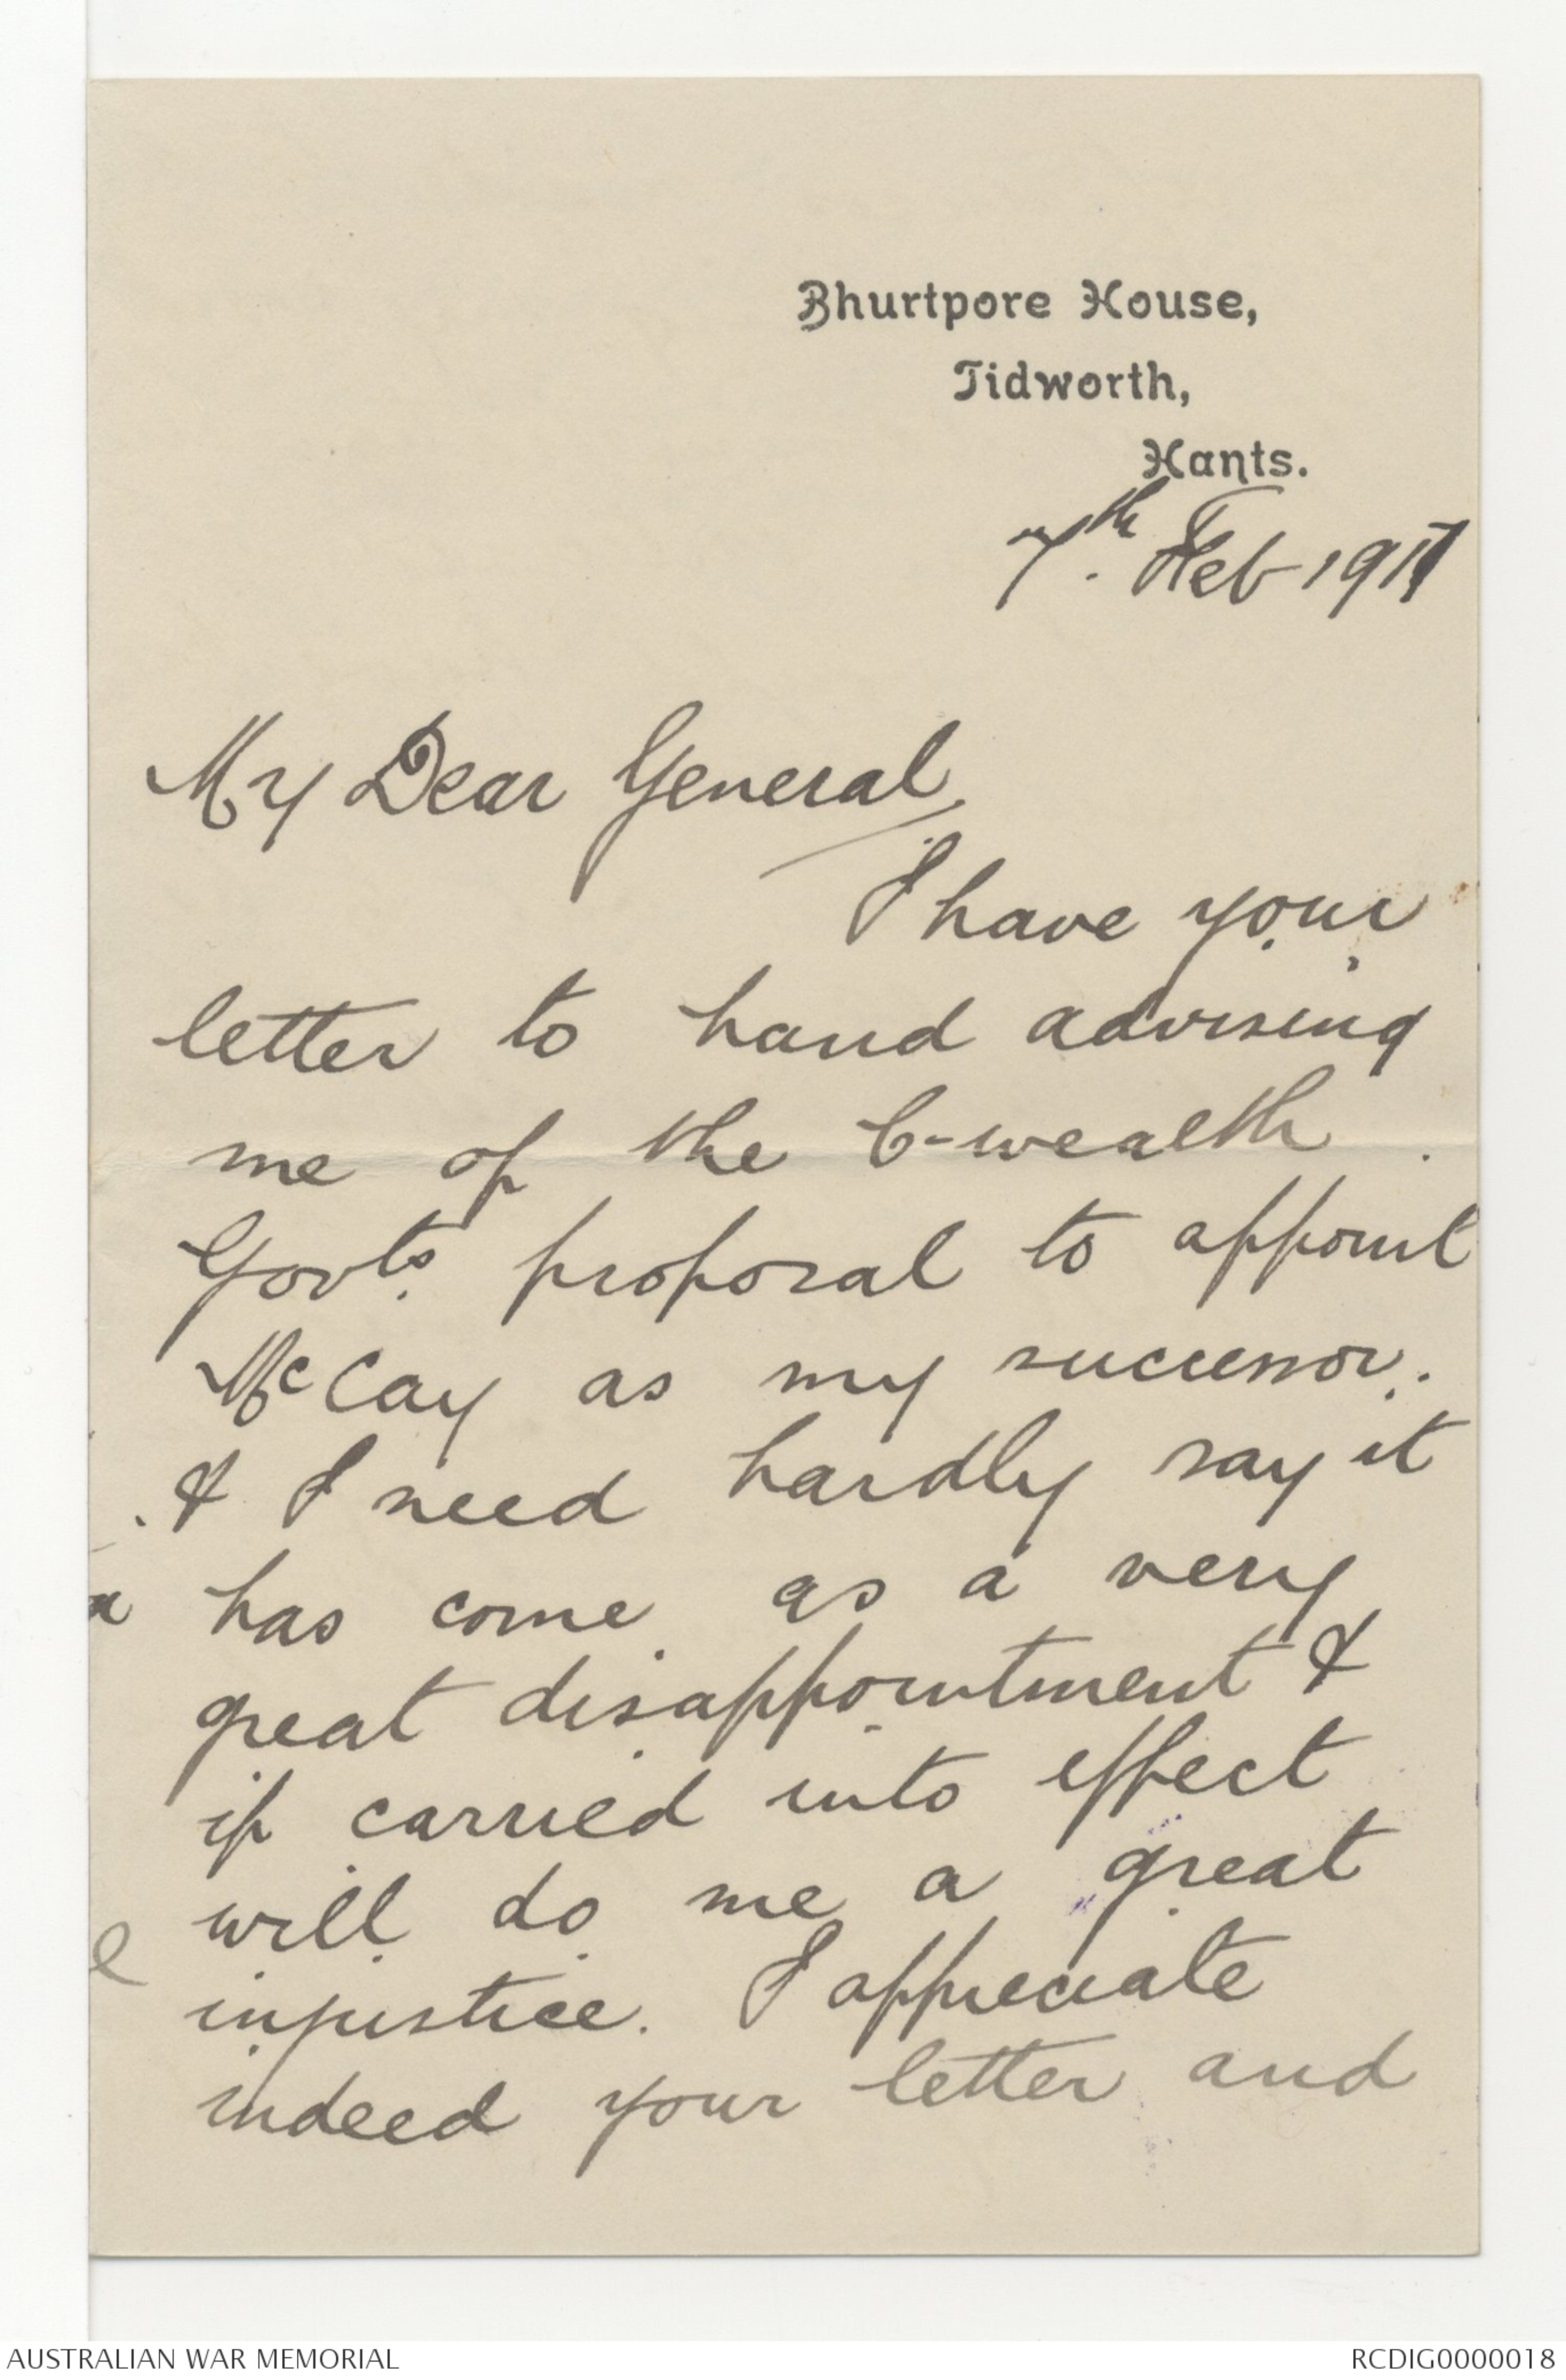 Bhurtpore House,
Tidworth,
Hants.
7th. Feb 1917
My Dear General,
I have your
letter to hand advising
me of the C-wealth
Govts. proposal to appoint
McCay as my successor.
& I need hardly say it
has come as a very
great disappointment &
if carried into effect
will do me a great
injustice. I appreciate
indeed your letter and
AUSTRALIAN WAR MEMORIAL
RCDIG0000018